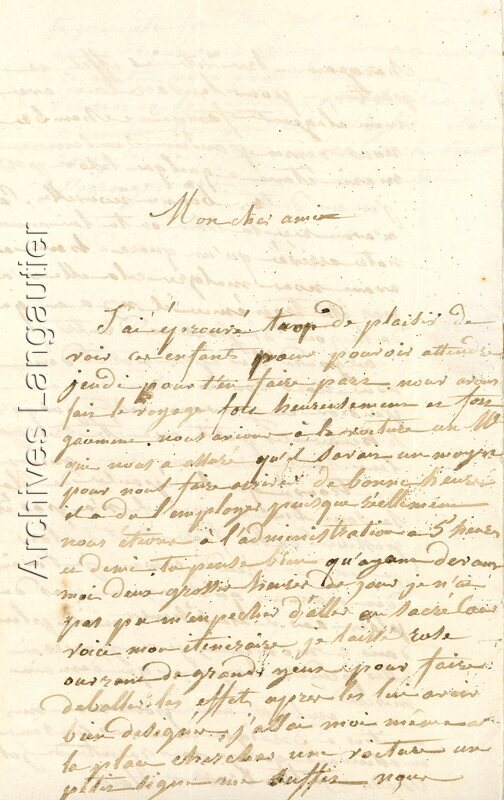 Mon cher ami
J'ai éprouvé trop de plaisir de
voir ces enfant pour pouvoir attendre
jeudi pour t'en faire part nous avons
fait le voyage fort heureusement et fort
gaiement. nous avions à la voiture un Mr
qui nous a assuré qu'il savait un moyen
pour nous faire arriver de bonne heure
il a du l'employer puisque réellement
nous étions à l'administration a 5 heures
et demi. tu pense bien qu'ayant devant
moi deux grosses heures de jour je n'ai
pas pu m'empecher d'aller au sacré Cœur
voici mon itineraire je laisse rose
ouvrant de grands yeux pour faire
deballer les effets apres les lui avoir
bien designés j'allai moi même a
la place chercher une voiture un
petit signe me suffit nous
Archives Langautier